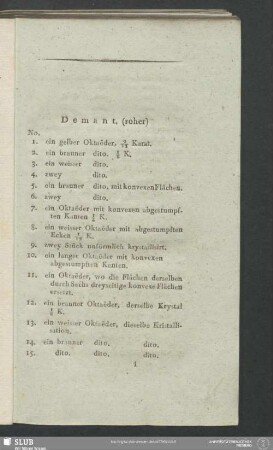 Demant. (roher)
No.
1. ein gelber Oktaëder, Karat.
2. ein brauner dito, K.
3. ein weisser dito.
4. zwey dito.
5. ein brauner dito, mit konvexen Flächen.
6. zwey dito.
7. ein Oktaëder mit konvexen abgestumpf-
ten Kanten K.
8. ein weisser Oktaëder mit abgestumpften
Ecken K.
9. zwey Stück unförmlich krystallisirt.
10. ein langer Oktaëder mit konvexen
abgestumpften Kanten.
11. ein Oktaëder, wo die Flächen derselben
durch sechs dreyseitige konvexe Flächen
ersetzt.
12. ein brauner Oktaëder, derselbe Krystal
K.
13. ein weisser Oktaëder, dieselbe Kristalli-
sation.
14. ein brauner dito. dito.
15. dito. dito. dito.
1
SLUB